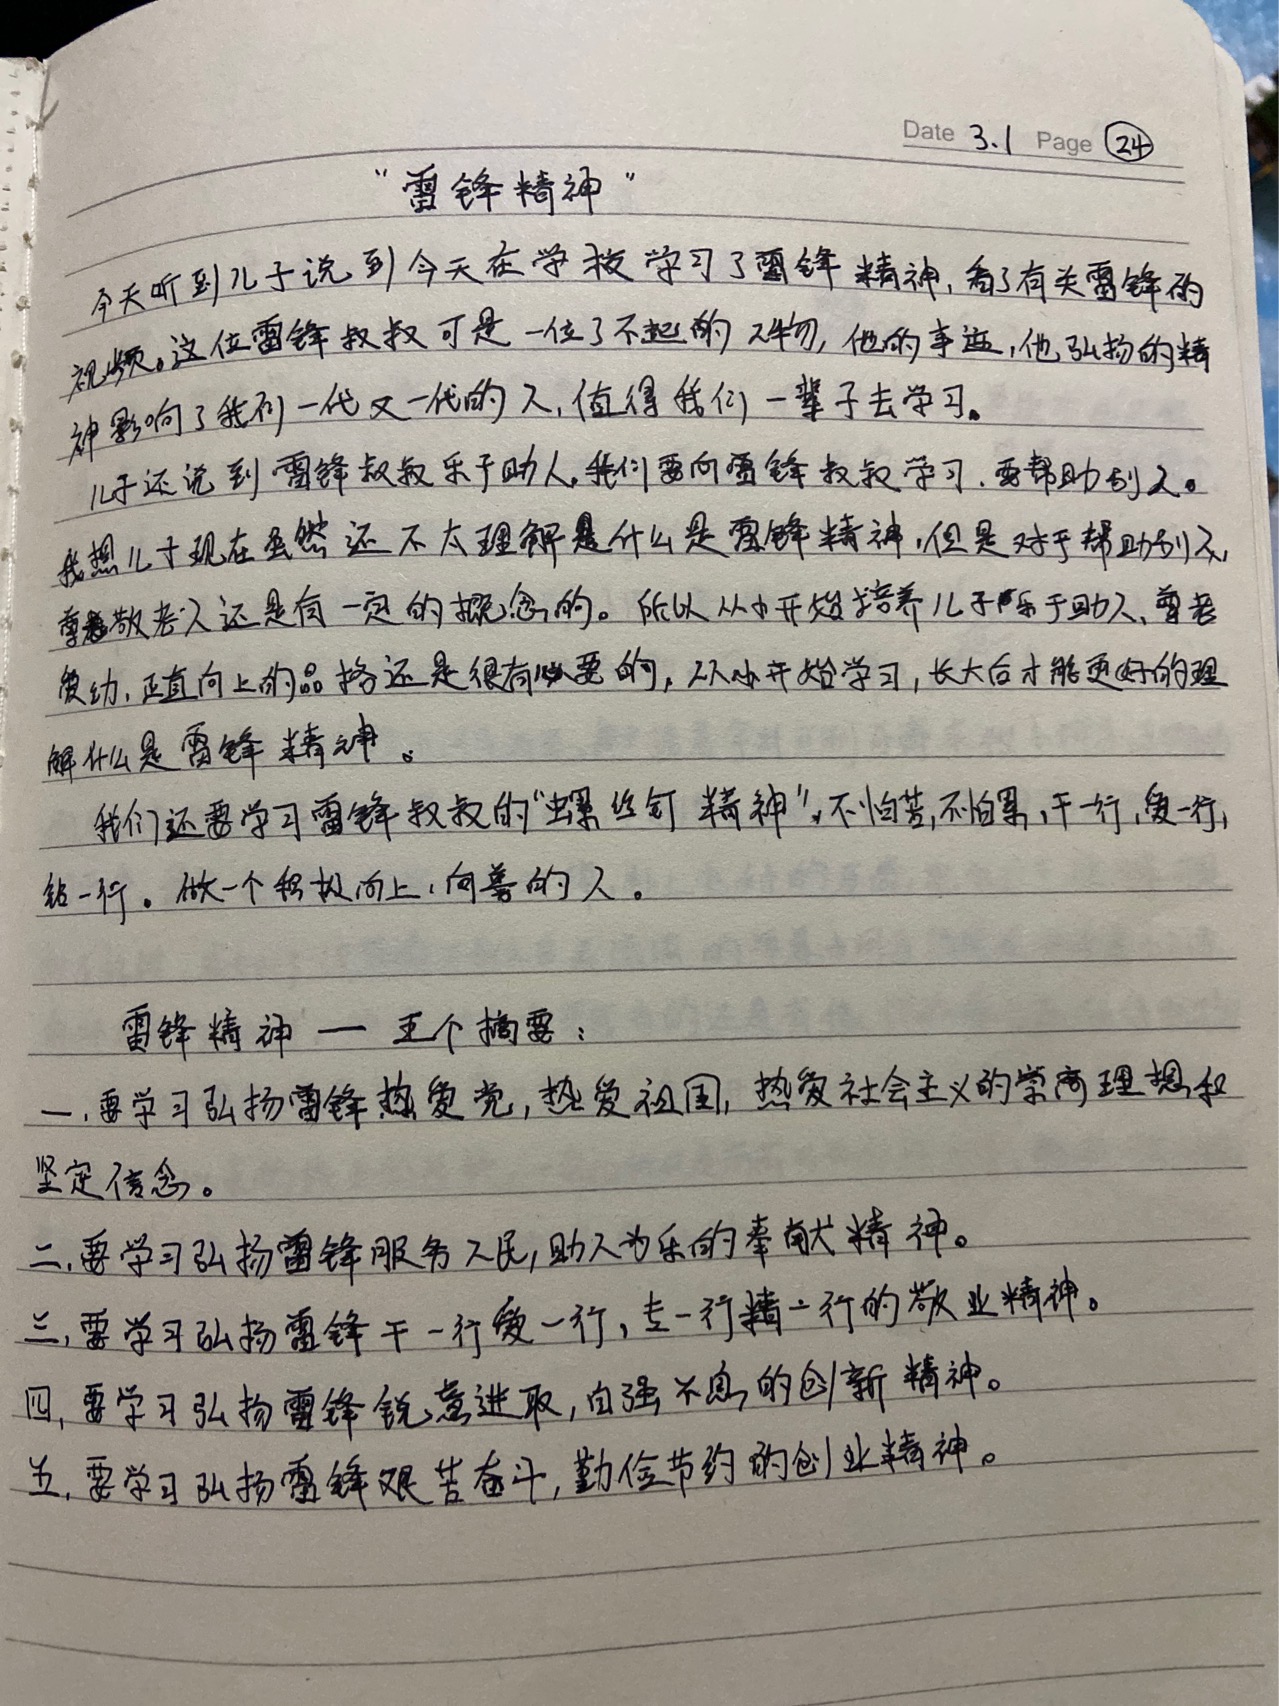 Date 3.1 Page 24
“雷锋精神”
今天听到儿子说到今天在学校学习了雷锋精神，看了有关雷锋的
视频。这位雷锋叔叔可是一位了不起的人物，他的事迹，他弘扬的精
神影响了我们一代又一代的人，值得我们一辈子去学习。
儿子还说到雷锋叔叔乐于助人。我们要向雷锋叔叔学习，要帮助别人。
我想儿子现在虽然还不太理解是什么是雷锋精神，但是对于帮助别人，
尊敬老人还是有一定的概念的。所以从小开始培养儿子乐于助人、尊老
爱幼、正直向上的品格还是很有必要的，从小开始学习，长大后才能更好的理
解什么是雷锋精神。
我们还要学习雷锋叔叔的“螺丝钉精神”，不怕苦，不怕累，干一行，爱一行，
钻一行。做一个积极向上，向善的人。
雷锋精神一五个摘要：
一，要学习弘扬雷锋热爱党，热爱祖国，热爱社会主义的崇高理想和
坚定信念。
二，要学习弘扬雷锋服务人民，助人为乐的奉献精神。
三，要学习弘扬雷锋干一行爱一行，专一行精一行的敬业精神。
四，要学习弘扬雷锋锐意进取，自强不息的创新精神。
五，要学习弘扬雷锋艰苦奋斗，勤俭节约的创业精神。